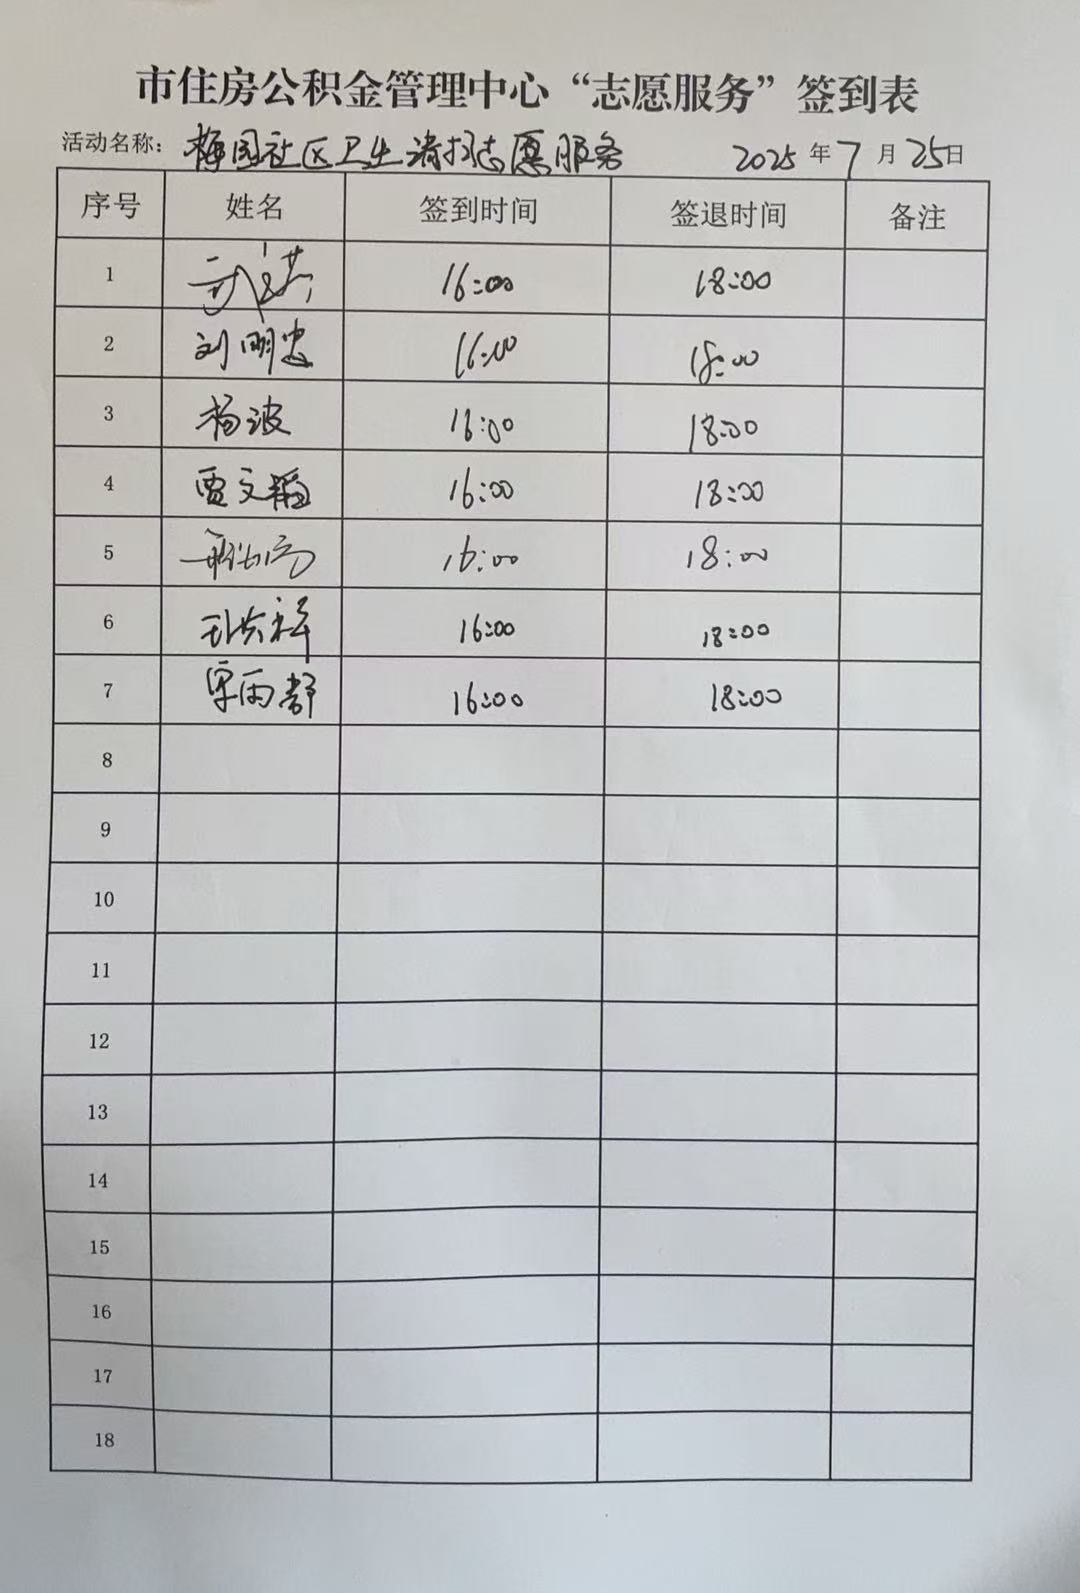 市住房公积金管理中心“志愿服务”签到表
活动名称: 梅园社区卫生清扫志愿服务 2025年7月25日
序号 姓名 签到时间 签退时间 备注
1 16:00 18:00
2 刘明忠 16:00 18:00
3 杨波 16:00 18:00
4 贾文韬 16:00 18:00
5 16:00 18:00
6 16:00 18:00
7 雨舒 16:00 18:00
8
9
10
11
12
13
14
15
16
17
18